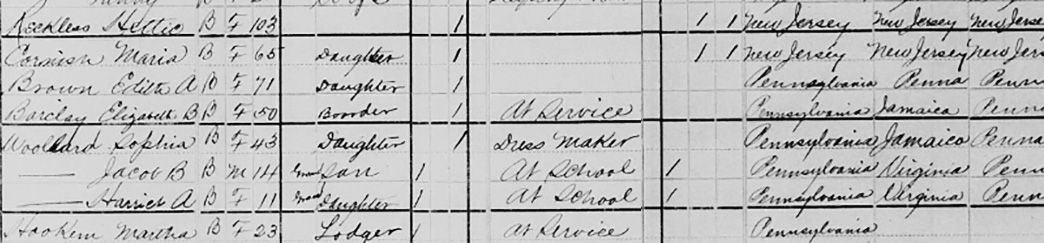 Reckless Hettie B F 103 1 1 1 New Jersey New Jersey New Jerse
Cornish Maria B F 65 Daughter 1 1 1 New Jersey New Jersey New Jers
Brown Edith A B F 71 Daughter 1 Pennsylvania Penna Penn
Barclay Elizabeth B B F 50 Boorder 1 At Service Pennsylvania Jamaica Penn
Woollard Sophia B F 43 Daughter 1 Dress Maker Pennsylvania Jamaica Penna
—— Jacob B B M 14 Grand Son 1 At School 1 Pennsylvania Virginia Penn
—— Harriet A B F 11 Grand Daughter 1 At School 1 Pennsylvania Virginia Penn
Martha B F 23 Lodger 1 At Service Pennsylvania